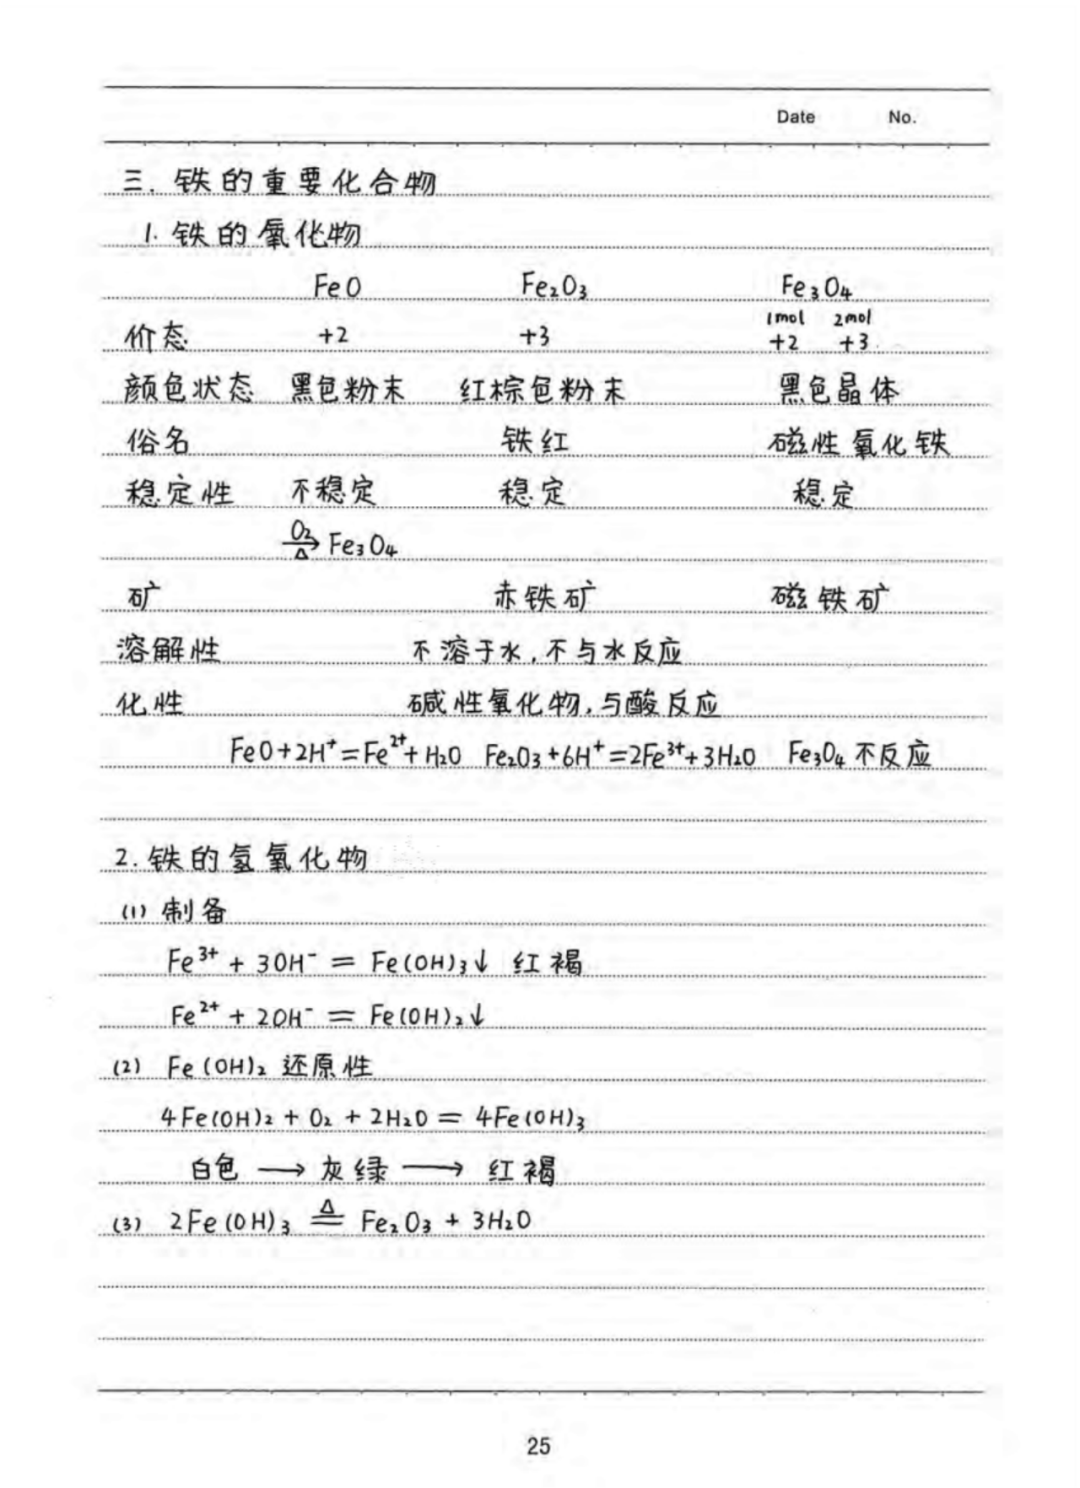 Date No.
三. 铁的重要化合物
1. 铁的氧化物
FeO Fe₂O₃ Fe₃O₄
1mol 2mol
价态 +2 +3 +2 +3
颜色状态 黑色粉末 红棕色粉末 黑色晶体
俗名 铁红 磁性氧化铁
稳定性 不稳定 稳定 稳定
O₂ → △ Fe₃O₄
矿 赤铁矿 磁铁矿
溶解性 不溶于水,不与水反应
化性 碱性氧化物,与酸反应
FeO+2H⁺=Fe²⁺+H₂O Fe₂O₃+6H⁺=2Fe³⁺+3H₂O Fe₃O₄不反应
2.铁的氢氧化物
(1) 制备
Fe³⁺ + 3OH⁻ = Fe(OH)₃↓ 红褐
Fe²⁺ + 2OH⁻ = Fe(OH)₂↓
(2) Fe(OH)₂ 还原性
4Fe(OH)₂ + O₂ + 2H₂O = 4Fe(OH)₃
白色 → 灰绿 → 红褐
(3) 2Fe(OH)₃ ≜ Fe₂O₃ + 3H₂O
25